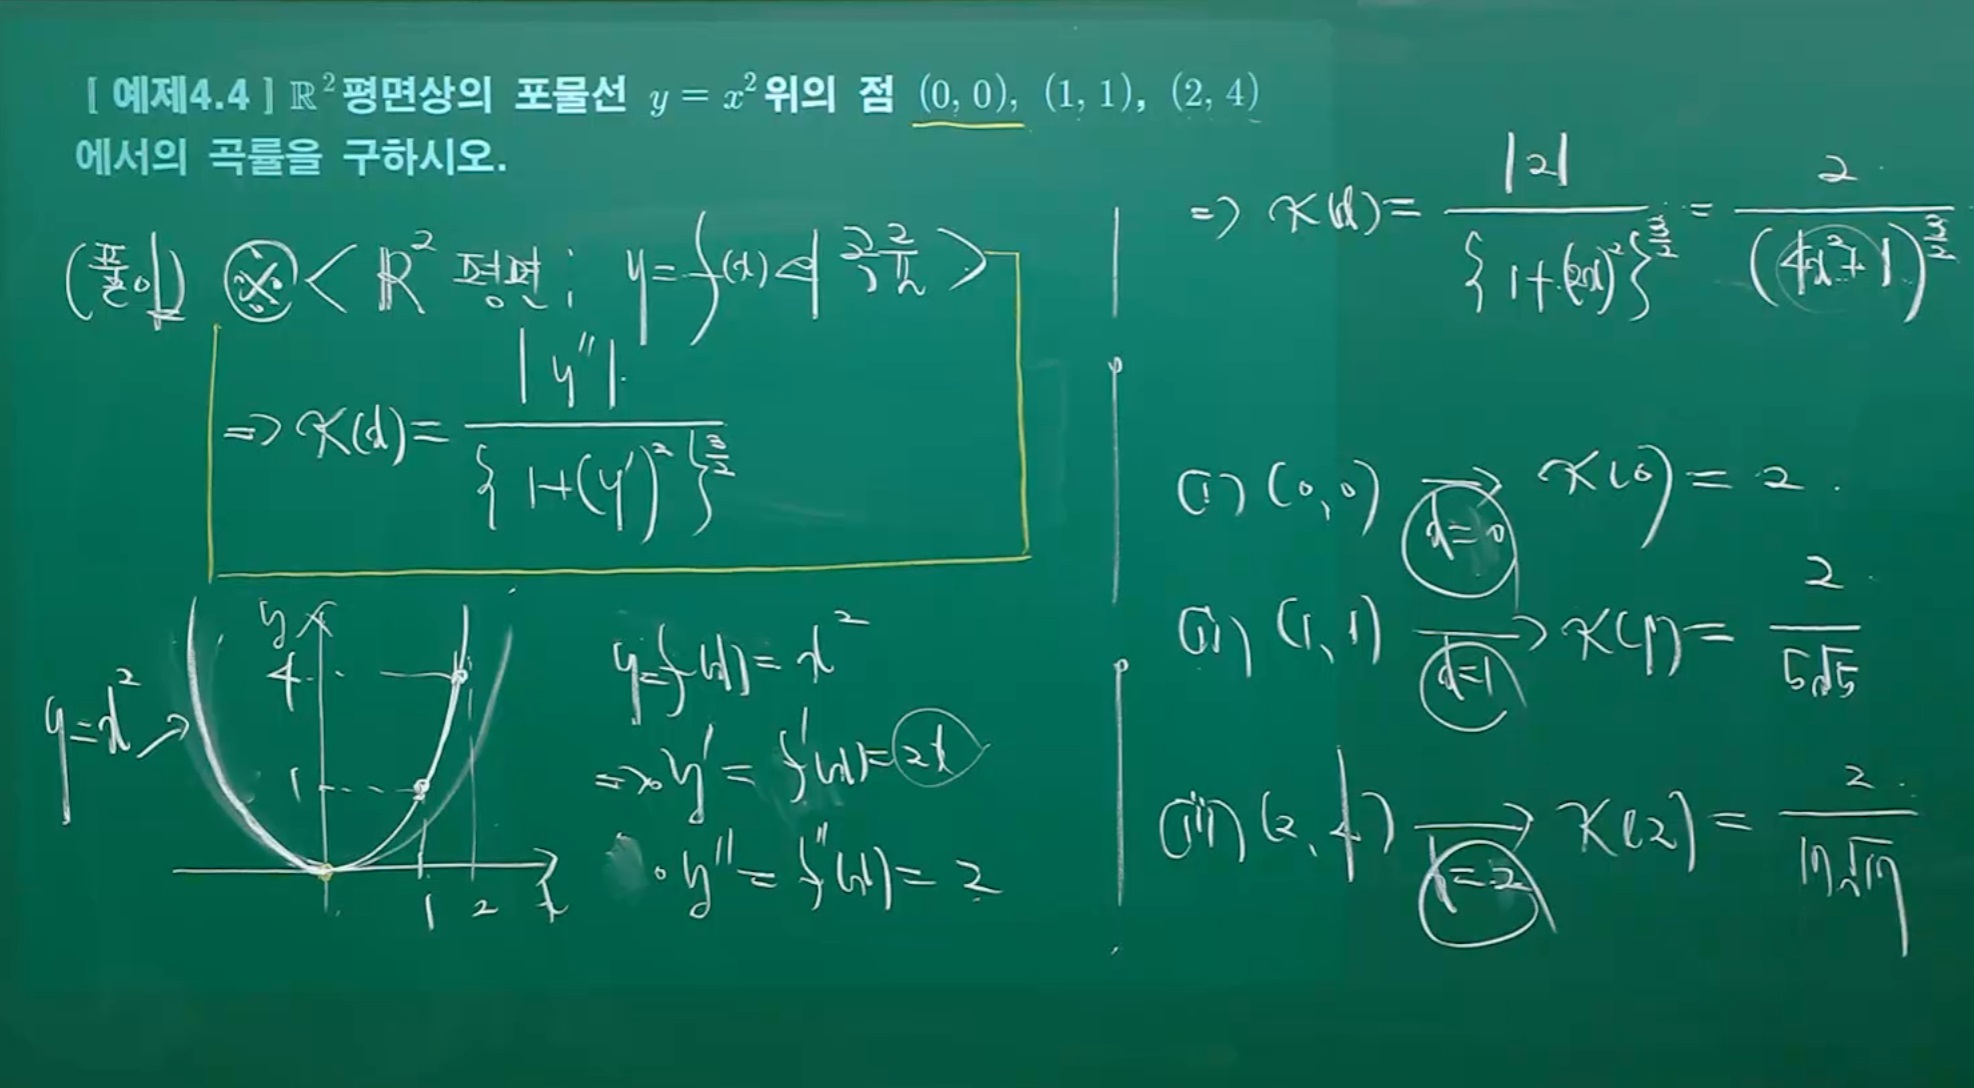 [ 예제4.4 ] ℝ² 평면상의 포물선 y = x² 위의 점 (0, 0), (1, 1), (2, 4)
에서의 곡률을 구하시오.
(풀이) ※ < ℝ² 평면 : y = f(x)의 곡률 >
⇒ κ(x) = |y''| / { 1+(y')² }^(3/2)
y
4
1
y = x² →
1 2 x
y = f(x) = x²
⇒ • y' = f'(x) = 2x
• y'' = f''(x) = 2
⇒ κ(x) = |2| / { 1+(2x)² }^(3/2) = 2 / (4x²+1)^(3/2)
(i) (0, 0) → x=0 κ(0) = 2
(ii) (1, 1) → x=1 κ(1) = 2 / 5√5
(iii) (2, 4) → x=2 κ(2) = 2 / 17√17